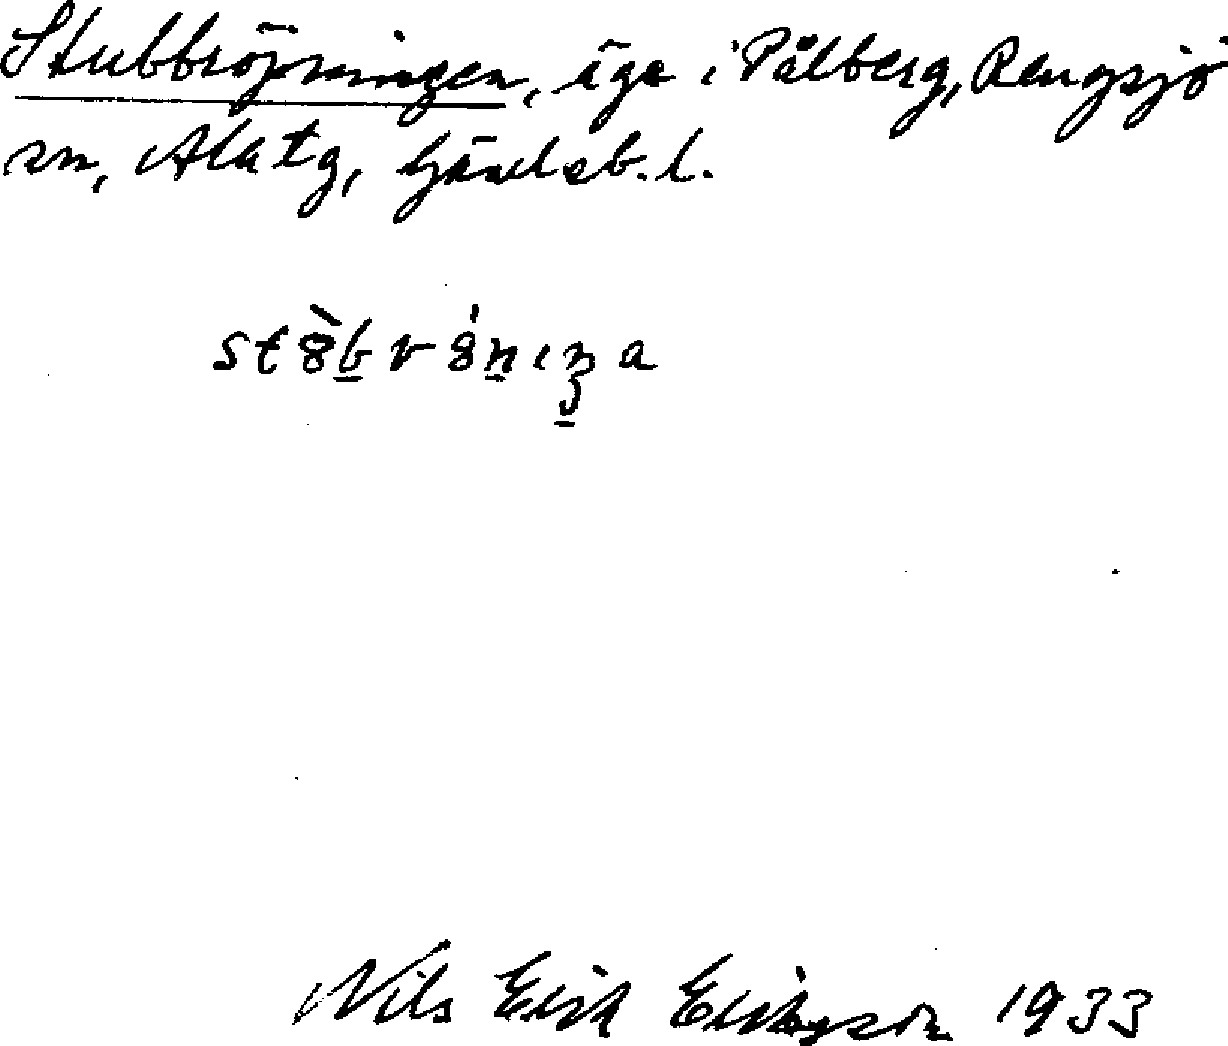 Stubbröjningen, äga i Pålberg, Rengsjö
sn, Ala tg, Gävleb. l.
Nils Erik Eriksson 1933